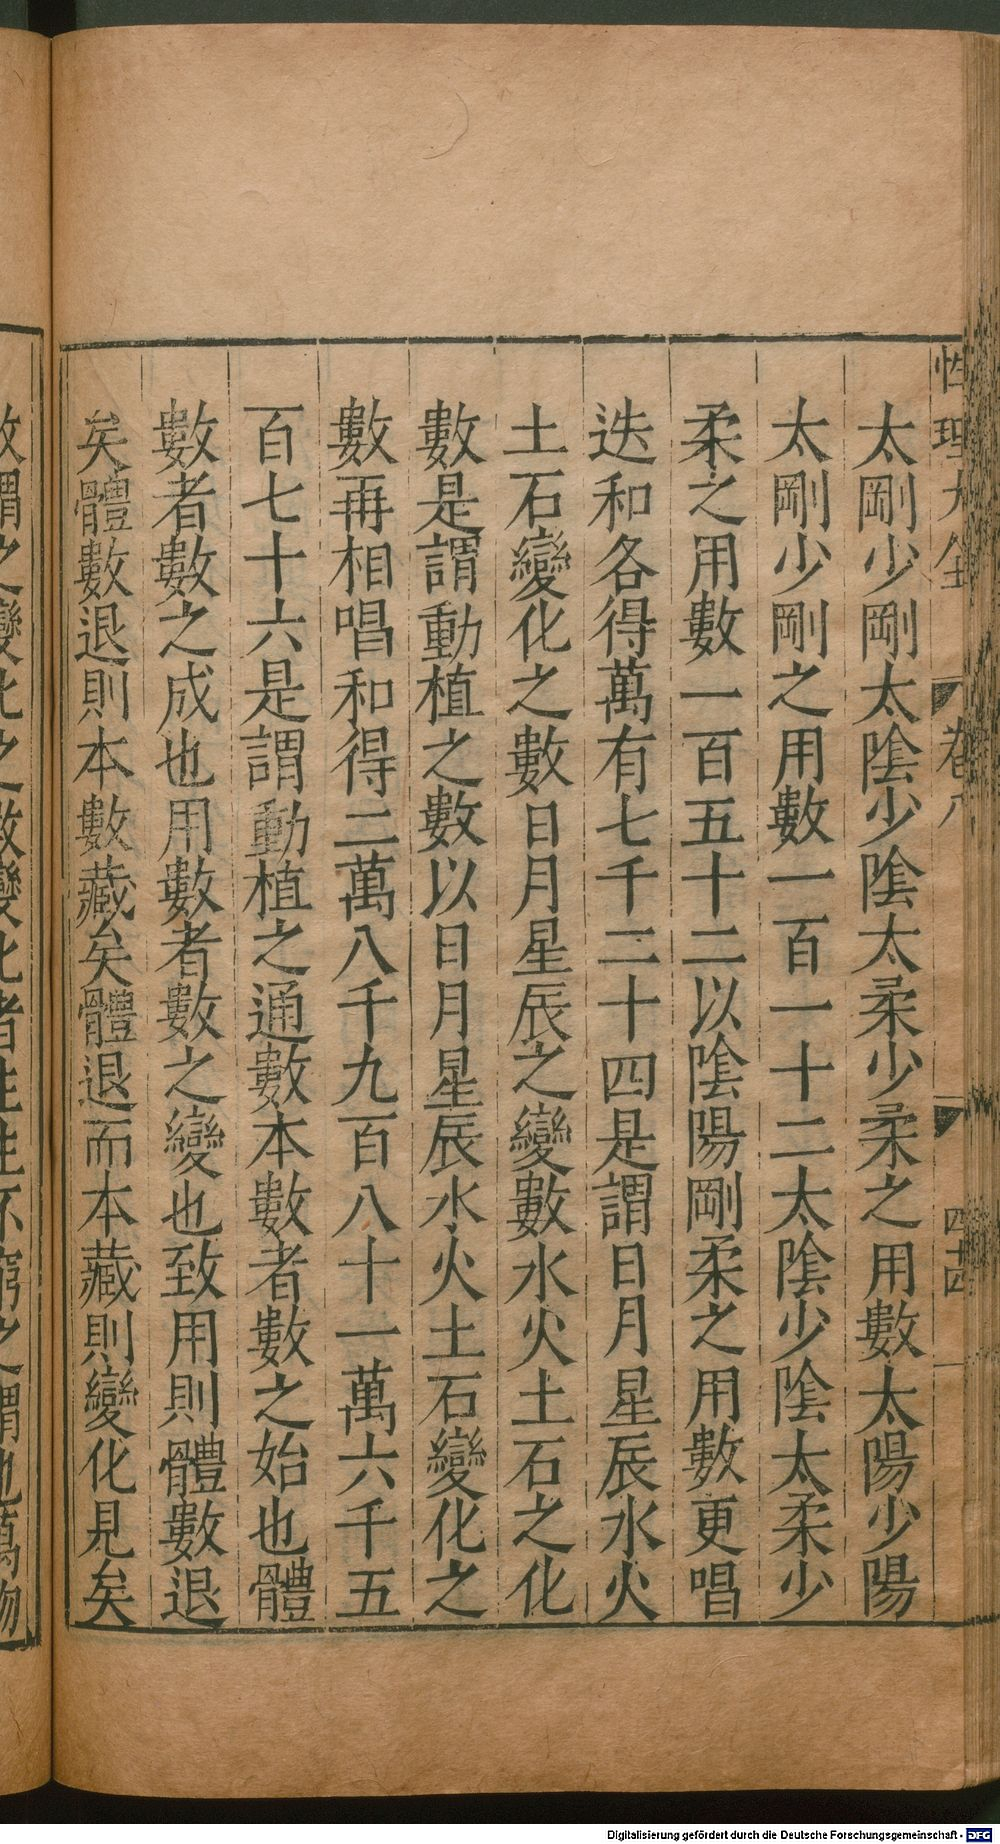 性理大全 卷八 四十四
太剛少剛太陰少陰太柔少柔之用數太陽少陽
太剛少剛之用數一百一十二太陰少陰太柔少
柔之用數一百五十二以陰陽剛柔之用數更唱
迭和各得萬有七千二十四是謂日月星辰水火
土石變化之數日月星辰之變數水火土石之化
數是謂動植之數以日月星辰水火土石變化之
數再相唱和得二萬八千九百八十一萬六千五
百七十六是謂動植之通數本數者數之始也體
數者數之成也用數者數之變也致用則體數退
矣體數退則本數藏矣體退而本藏則變化見矣
數謂之變化之數變化者生生不窮之謂也萬物
Digitalisierung gefördert durch die Deutsche Forschungsgemeinschaft - DFG